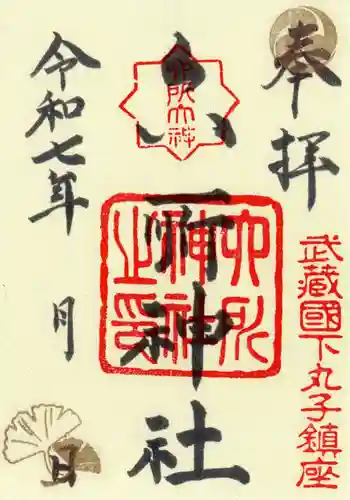 奉拝
武蔵國下丸子鎮座
六所神社
六所大神
六所神社之印
令和七年
月
日